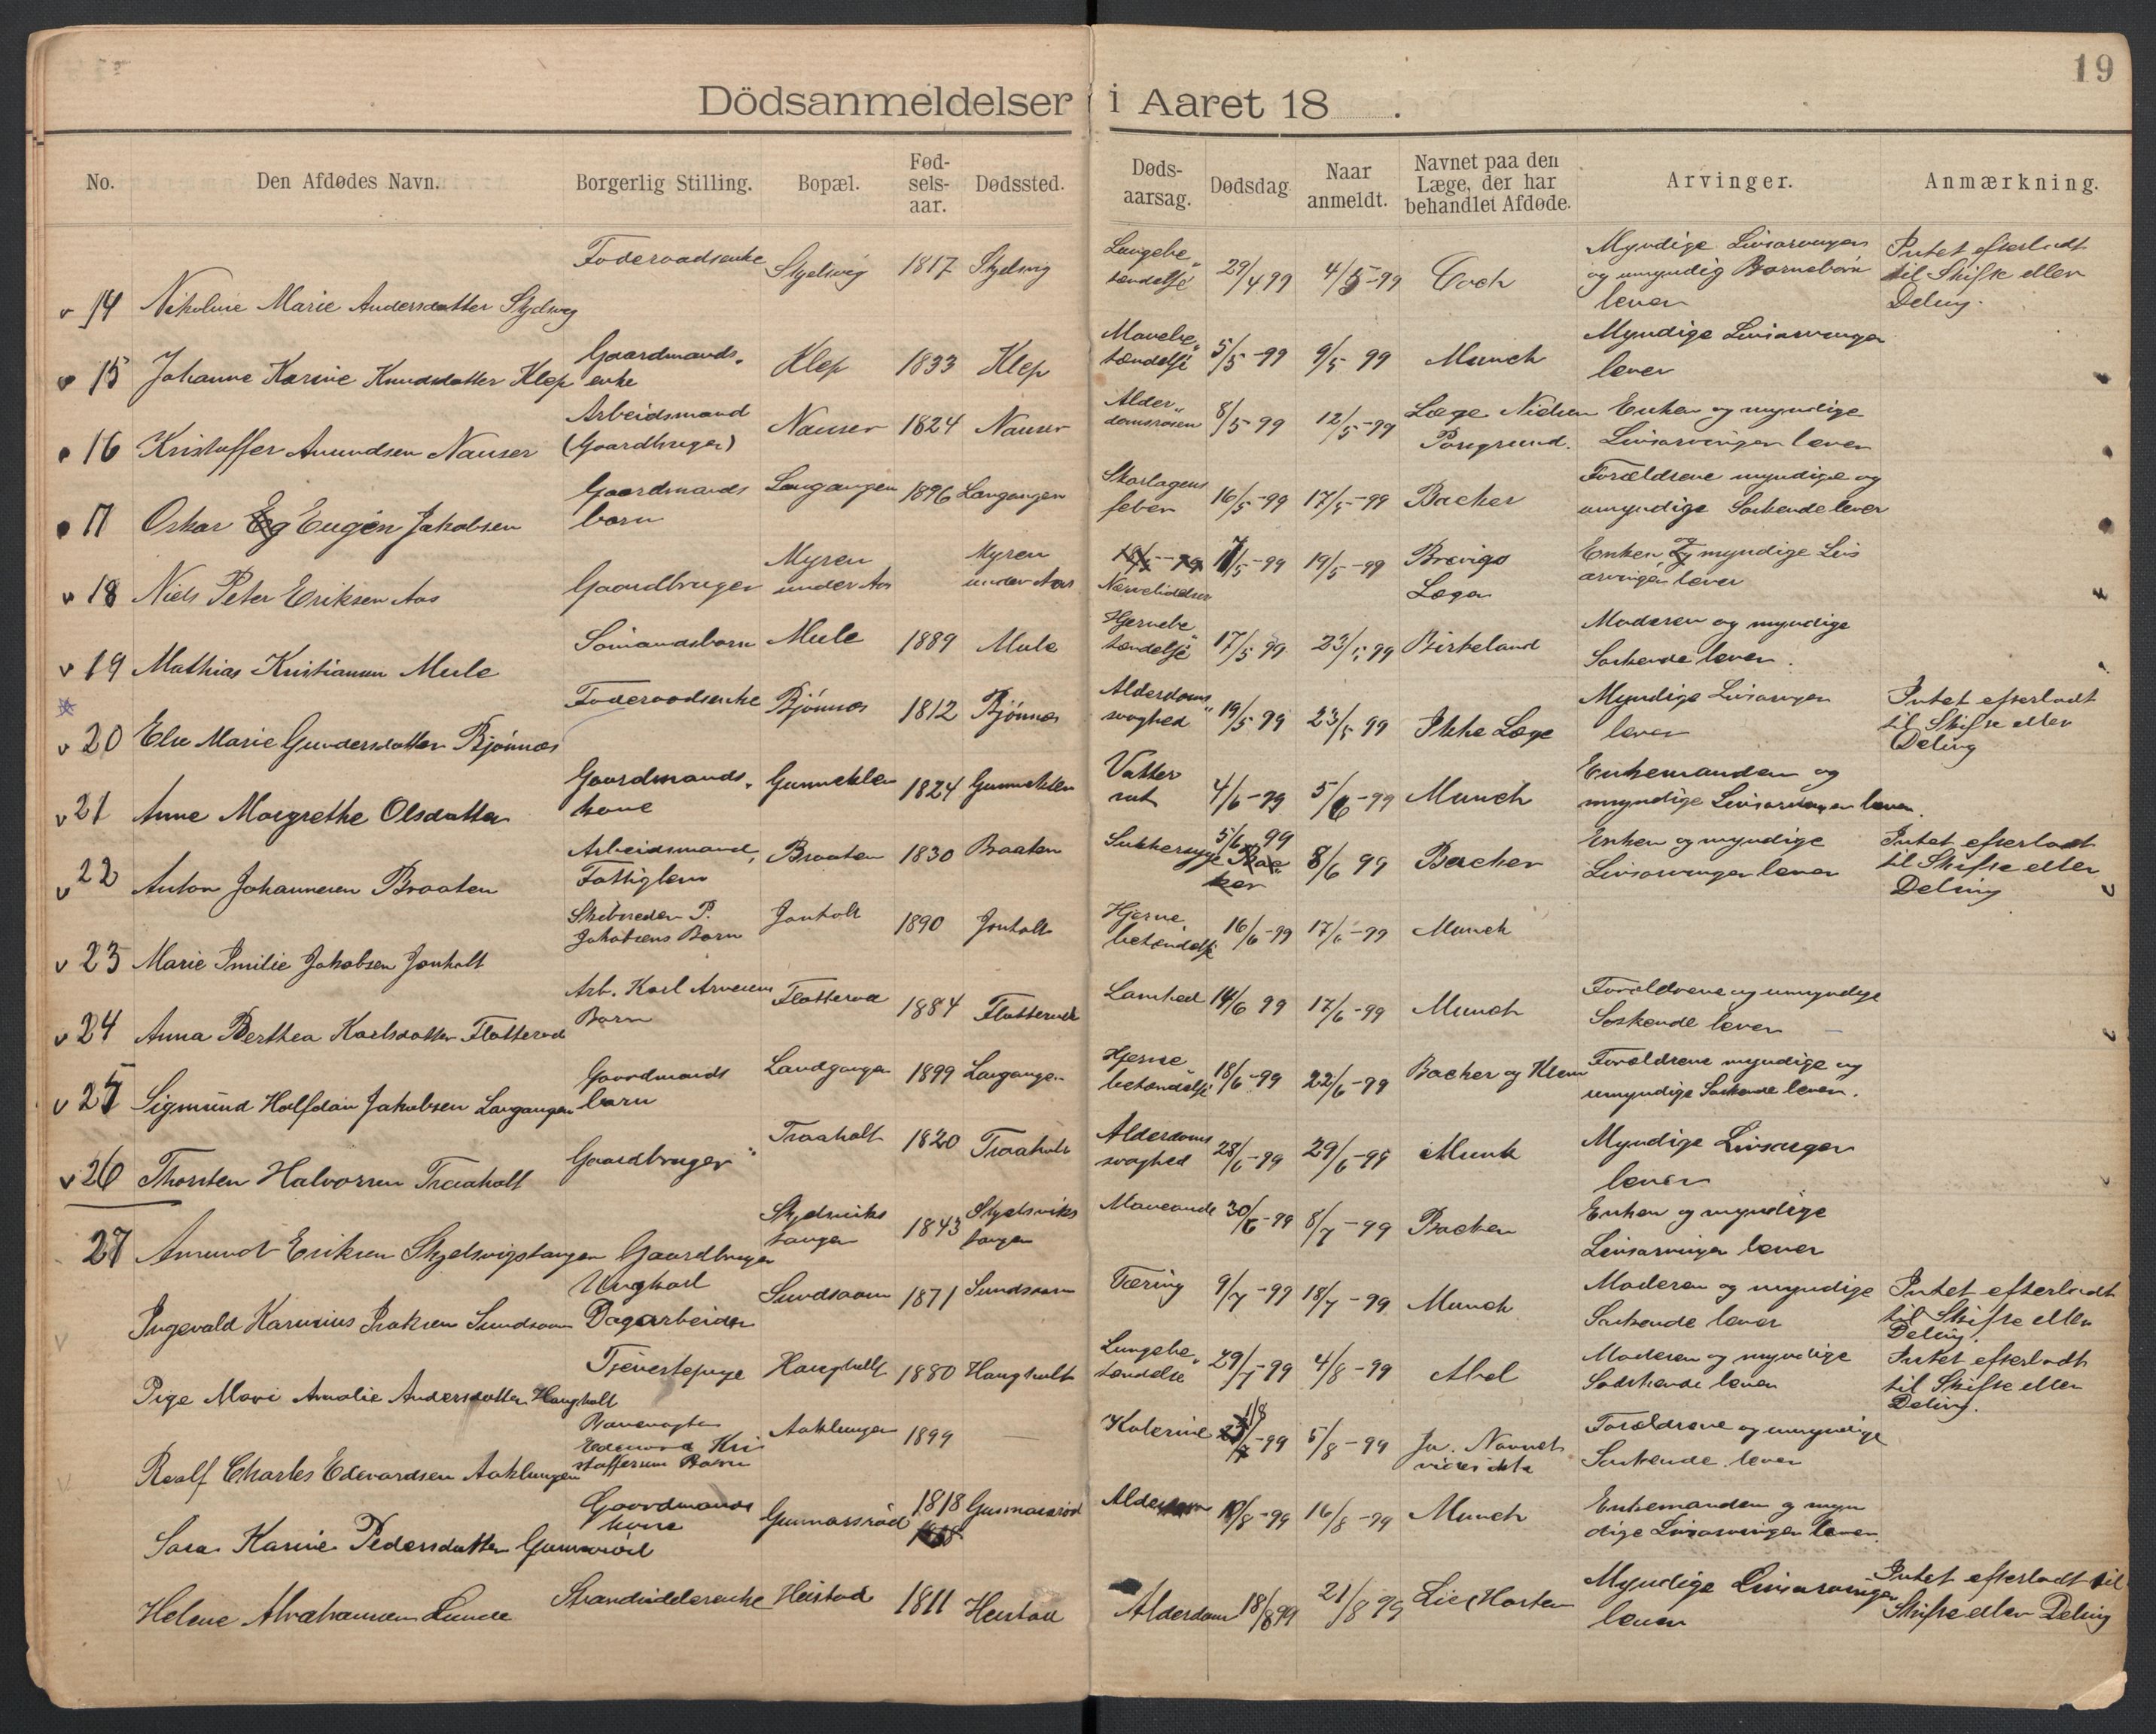 19
Dödsanmeldelser i Aaret 18 .
No. Den Afdødes Navn. Borgerlig Stilling. Bopæl. Fød-sels-aar. Dødssted. Døds-aarsag. Dødsdag Naar anmeldt. Navnet paa den Læge, der har behandlet Afdøde. Arvinger. Anmærkning.
14 Nikoline Marie Andersdatter Skjelvig Foderaadsenke Skjelsvig 1817 Skjelsvig Lungebe„tændelse 29/4 99 4/5-99 Myndige Livsarvinger og umyndig Barnebörn lever Intet efterladt til Skifte eller Deling.
15 Johanne Karine Knudsdatter Klep Gaardmands„enke Klep 1833 Klep Mavebe„tændelse 5/5-99 9/5 99 Munch Myndige Livsarvinger lever
16 Kristoffer Amundsen Nauser Arbeidsmand (Gaardbruger) Nauser 1824 Nauser Alder„ 8/5-99 12/5-99 Læge Nielsen Porsgrund. Enken og myndige Livsarvinger lever
17 Oskar Eg Eugén Jakobsen Gaardmands barn Langangen 1896 Langangen Skarlagens feber 16/5-99 17/5-99 Backer Forældrene myndige og umyndige Søskende lever
18 Niels Peter Eriksen Aas Gaardbruger Myren under Aas Myren under Aas Nervelidelser 17/5-99 19/5-99 Brevigs Læger Enken og myndige Livsarvinger lever
19 Mathias Kristiansen Mule Sömandsbarn Mule 1889 Mule Hjernebe„tændelse 17/5 99 23/5 99 Birkeland Moderen og myndige Søskende lever.
20 Else Marie Gundersdatter Bjönnæs Foderaadsenke Bjönnæs 1812 Bjönnæs Alderdoms„svaghed 19/5 99 23/5 99 Ikke Læge Myndige Livsarvinger lever Intet efterladt til Skifte eller Deling
21 Anne Margrethe Olsdatter Gaardmands„kone Gunneklev 1824 Gunneklev Vatter sot 4/6-99 5/6-99 Munch Enkemanden og myndige Livsarvinger lever.
22 Anton Johannesen Braaten Arbeidsmand, Fattiglem Braaten 1830 Braaten Sukkersyge 5/6 99 8/6 99 Backer Enken og myndige Livsarvinger lever Intet efterladt til Skifte eller Deling
23 Marie Emilie Jakobsen Jonholt Skibsreder P. Jakobsens Barn Jonholt 1890 Jonholt Hjerne„betændelse 16/6-99 17/6-99 Munch
24 Anna Berthea Karlsdatter Flotterød Arb. Karl Barn Flatterød 1884 Flatterød Lamhed 14/6 99 17/6-99 Munch Forældrene og umyndige Søskende lever
25 Sigmund Halfdan Jakobsen Langangen Gaardmands barn Landgangen 1899 Langangen Hjerne„betændelse 18/6-99 22/6-99 Backer og Forældrene myndige og umyndige Søskende lever.
26 Thorsten Halvorsen Traaholt Gaardbruger Traaholt 1820 Traaholt Alderdoms svaghed 28/6-99 29/6-99 Munk Myndige Livsarvger lever
27 Amund Eriksen Skjelsvigstangen Gaardbruger Skjelsviks tangen 1843 Skjelsviks tangen Maveonde 30/6-99 8/7-99 Backer Enken og myndige Livsarvinger lever
Ingevald Karinius Isaksen Sundsaasen Ungkarl Dagarbeider Sundsaasen 1871 Sundsaasen Tæring 9/7-99 18/7-99 Munch Moderen og myndige Søskende lever Intet efterladt til Skifte eller Deling.
Pige Mari Amalie Andersdatter Haugholt Tjenestepige Haugholt 1880 Haugholt Lungebe„tændelse 29/7-99 4/8-99 Abel Moderen og myndige Sødskende lever Intet efterladt til Skifte eller Deling.
Rolf Charles Edvardsen Aaklungen Banevogter Edvard Kristoffersens Barn Aaklungen 1899 — Kolerine 1/8-99 5/8-99 Forældrene og umyndige Søskende lever
Sara Karine Pedersdatter Gunnarsrød Gaardmands kone Gunnarsrød 1818 Gunnarsrød Alderdom 10/8-99 16/8-99 Munch Enkemanden og myndige Livsarvinger lever.
Helene Abrahamsen Lunde Strandsidderenke Heistad 1811 Heistad Alderdom 18/8 99 21/8 99 Lie Myndige Livsarvinger lever Intet efterladt til Skifte eller Deling